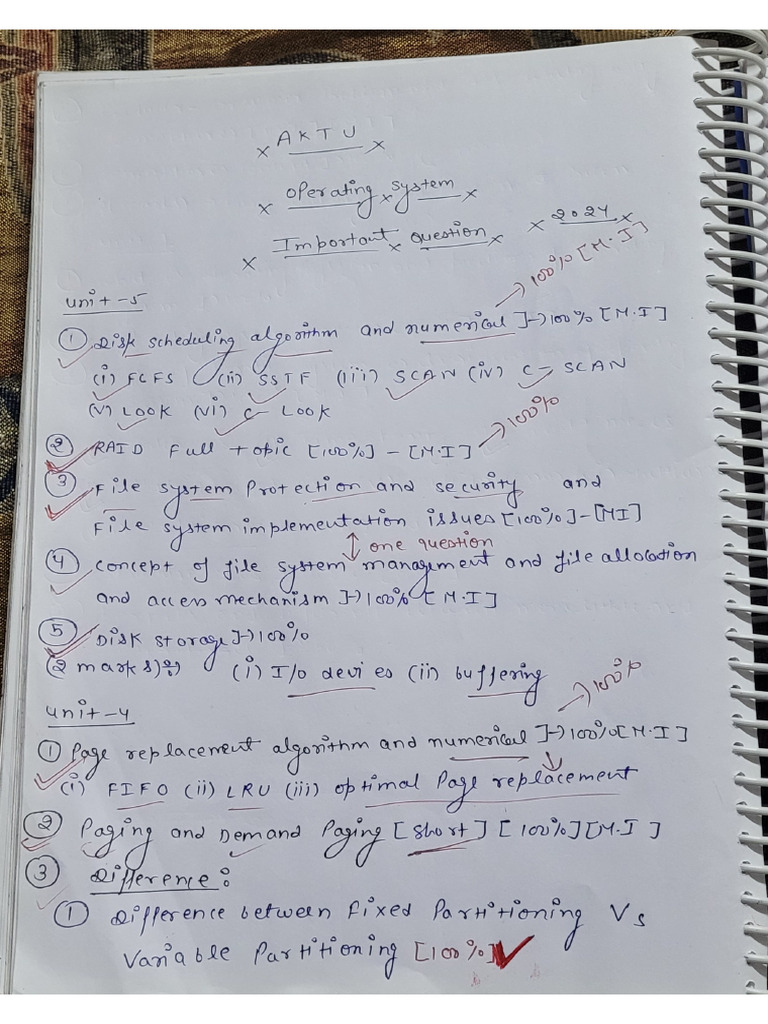 AKTU
Operating System
Important question 2024
unit-5
① Disk scheduling algorithm and numerical]→100% [M.I] → 100% [M.I]
(i) FCFS (ii) SSTF (iii) SCAN (iv) C-SCAN
(v) LOOK (vi) C-LOOK
② RAID Full topic [100%] - [M.I] → 100%
③ File system Protection and security and
File system implementation issues [100%]-[MI]
↕ one question
④ concept of file system management and file allocation
and access mechanism]→100% [M.I]
⑤ Disk storage]→100%
(2 marks): (i) I/o devies (ii) buffering
unit-4
① Page replacement algorithm and numerical]→100%[M.I] → 100%
(i) FIFO (ii) LRU (iii) optimal Page replacement
② Paging and Demand Paging [short] [100%][M.I]
③ Difference:
① Difference between Fixed Partitioning Vs
Variable Partitioning [100%]